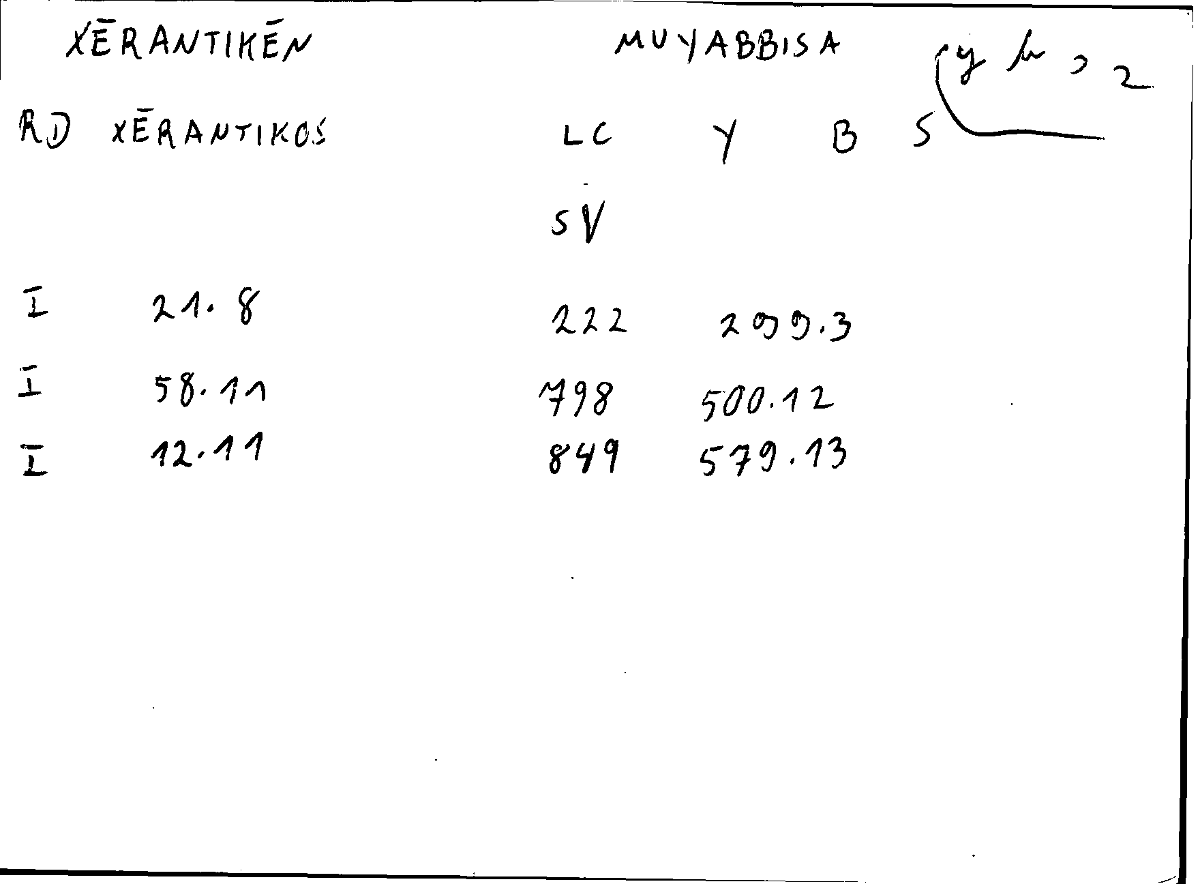 XĒRANTIKĒN MUYABBISA
RD XĒRANTIKOS LC Y B S
SV
I 21.8 222 299.3
I 58.11 798 500.12
I 12.11 849 579.13